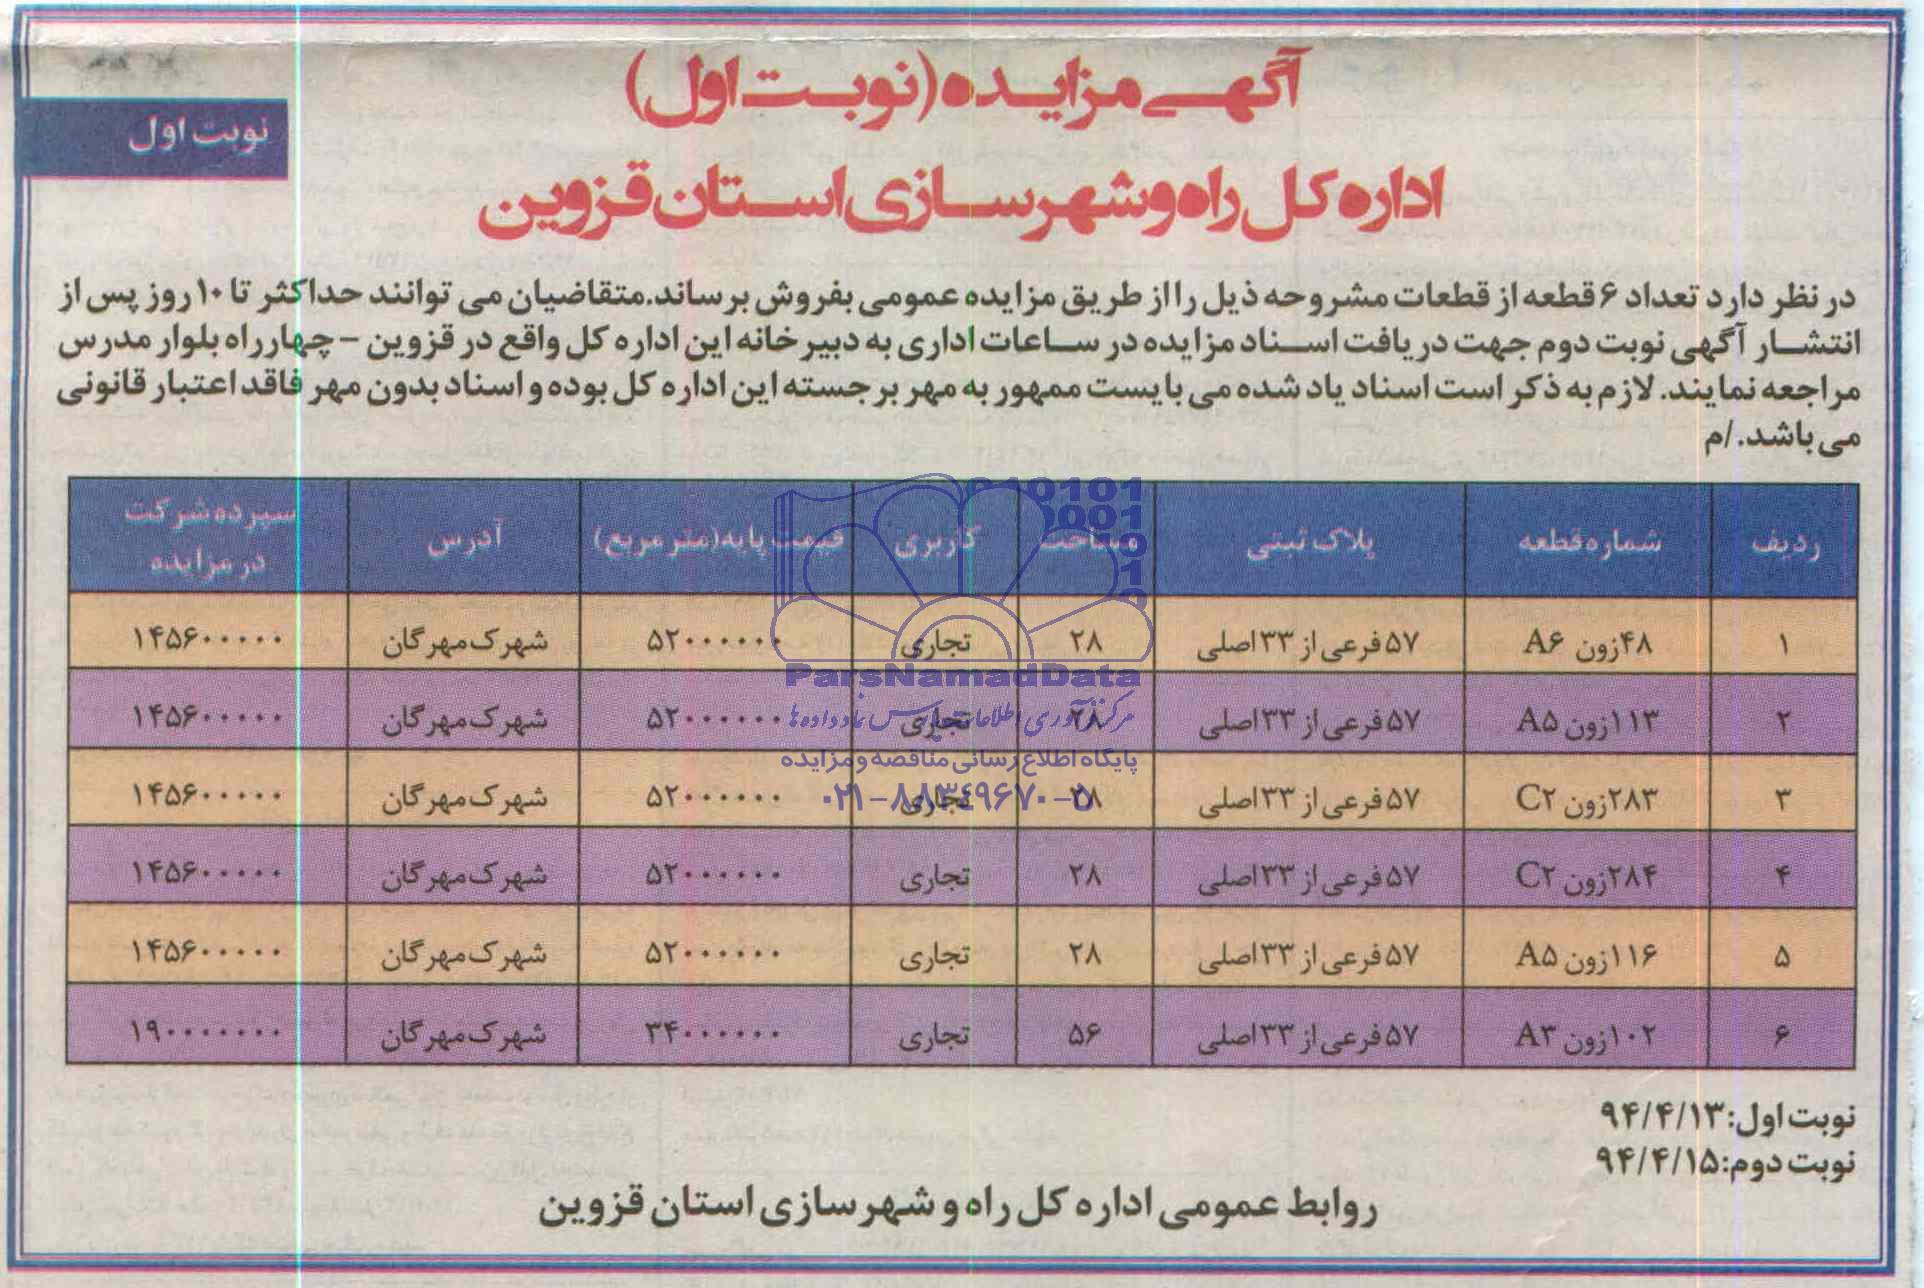 آگهی مزایده (نوبت اول)
نوبت اول
اداره کل راه و شهرسازی استان قزوین
در نظر دارد تعداد ۶ قطعه از قطعات مشروحه ذیل را از طریق مزایده عمومی بفروش برساند.متقاضیان می توانند حداکثر تا ۱۰ روز پس از
انتشار آگهی نوبت دوم جهت دریافت اسناد مزایده در ساعات اداری به دبیرخانه این اداره کل واقع در قزوین – چهارراه بلوار مدرس
مراجعه نمایند. لازم به ذکر است اسناد یاد شده می بایست ممهور به مهر برجسته این اداره کل بوده و اسناد بدون مهر فاقد اعتبار قانونی
می باشد./م
ردیف شماره قطعه پلاک ثبتی مساحت کاربری قیمت پایه(متر مربع) آدرس سپرده شرکت در مزایده
۱ ۴۸زون A۶ ۵۷ فرعی از ۳۳ اصلی ۲۸ تجاری ۵۲۰۰۰۰۰۰ شهرک مهرگان ۱۴۵۶۰۰۰۰۰
۲ ۱۱۳زون A۵ ۵۷ فرعی از ۳۳ اصلی ۲۸ تجاری ۵۲۰۰۰۰۰۰ شهرک مهرگان ۱۴۵۶۰۰۰۰۰
۳ ۲۸۳زون C۲ ۵۷ فرعی از ۳۳ اصلی ۲۸ تجاری ۵۲۰۰۰۰۰۰ شهرک مهرگان ۱۴۵۶۰۰۰۰۰
۴ ۲۸۴زون C۲ ۵۷ فرعی از ۳۳ اصلی ۲۸ تجاری ۵۲۰۰۰۰۰۰ شهرک مهرگان ۱۴۵۶۰۰۰۰۰
۵ ۱۱۶زون A۵ ۵۷ فرعی از ۳۳ اصلی ۲۸ تجاری ۵۲۰۰۰۰۰۰ شهرک مهرگان ۱۴۵۶۰۰۰۰۰
۶ ۱۰۲زون A۳ ۵۷ فرعی از ۳۳ اصلی ۵۶ تجاری ۳۴۰۰۰۰۰۰ شهرک مهرگان ۱۹۰۰۰۰۰۰۰
ParsNamadData
مرکز فرآوری اطلاعات پارس نماد داده ها
پایگاه اطلاع رسانی مناقصه و مزایده
۰۲۱-۸۸۳۴۹۶۷۰-۵
نوبت اول:۹۴/۴/۱۳
نوبت دوم:۹۴/۴/۱۵
روابط عمومی اداره کل راه و شهرسازی استان قزوین